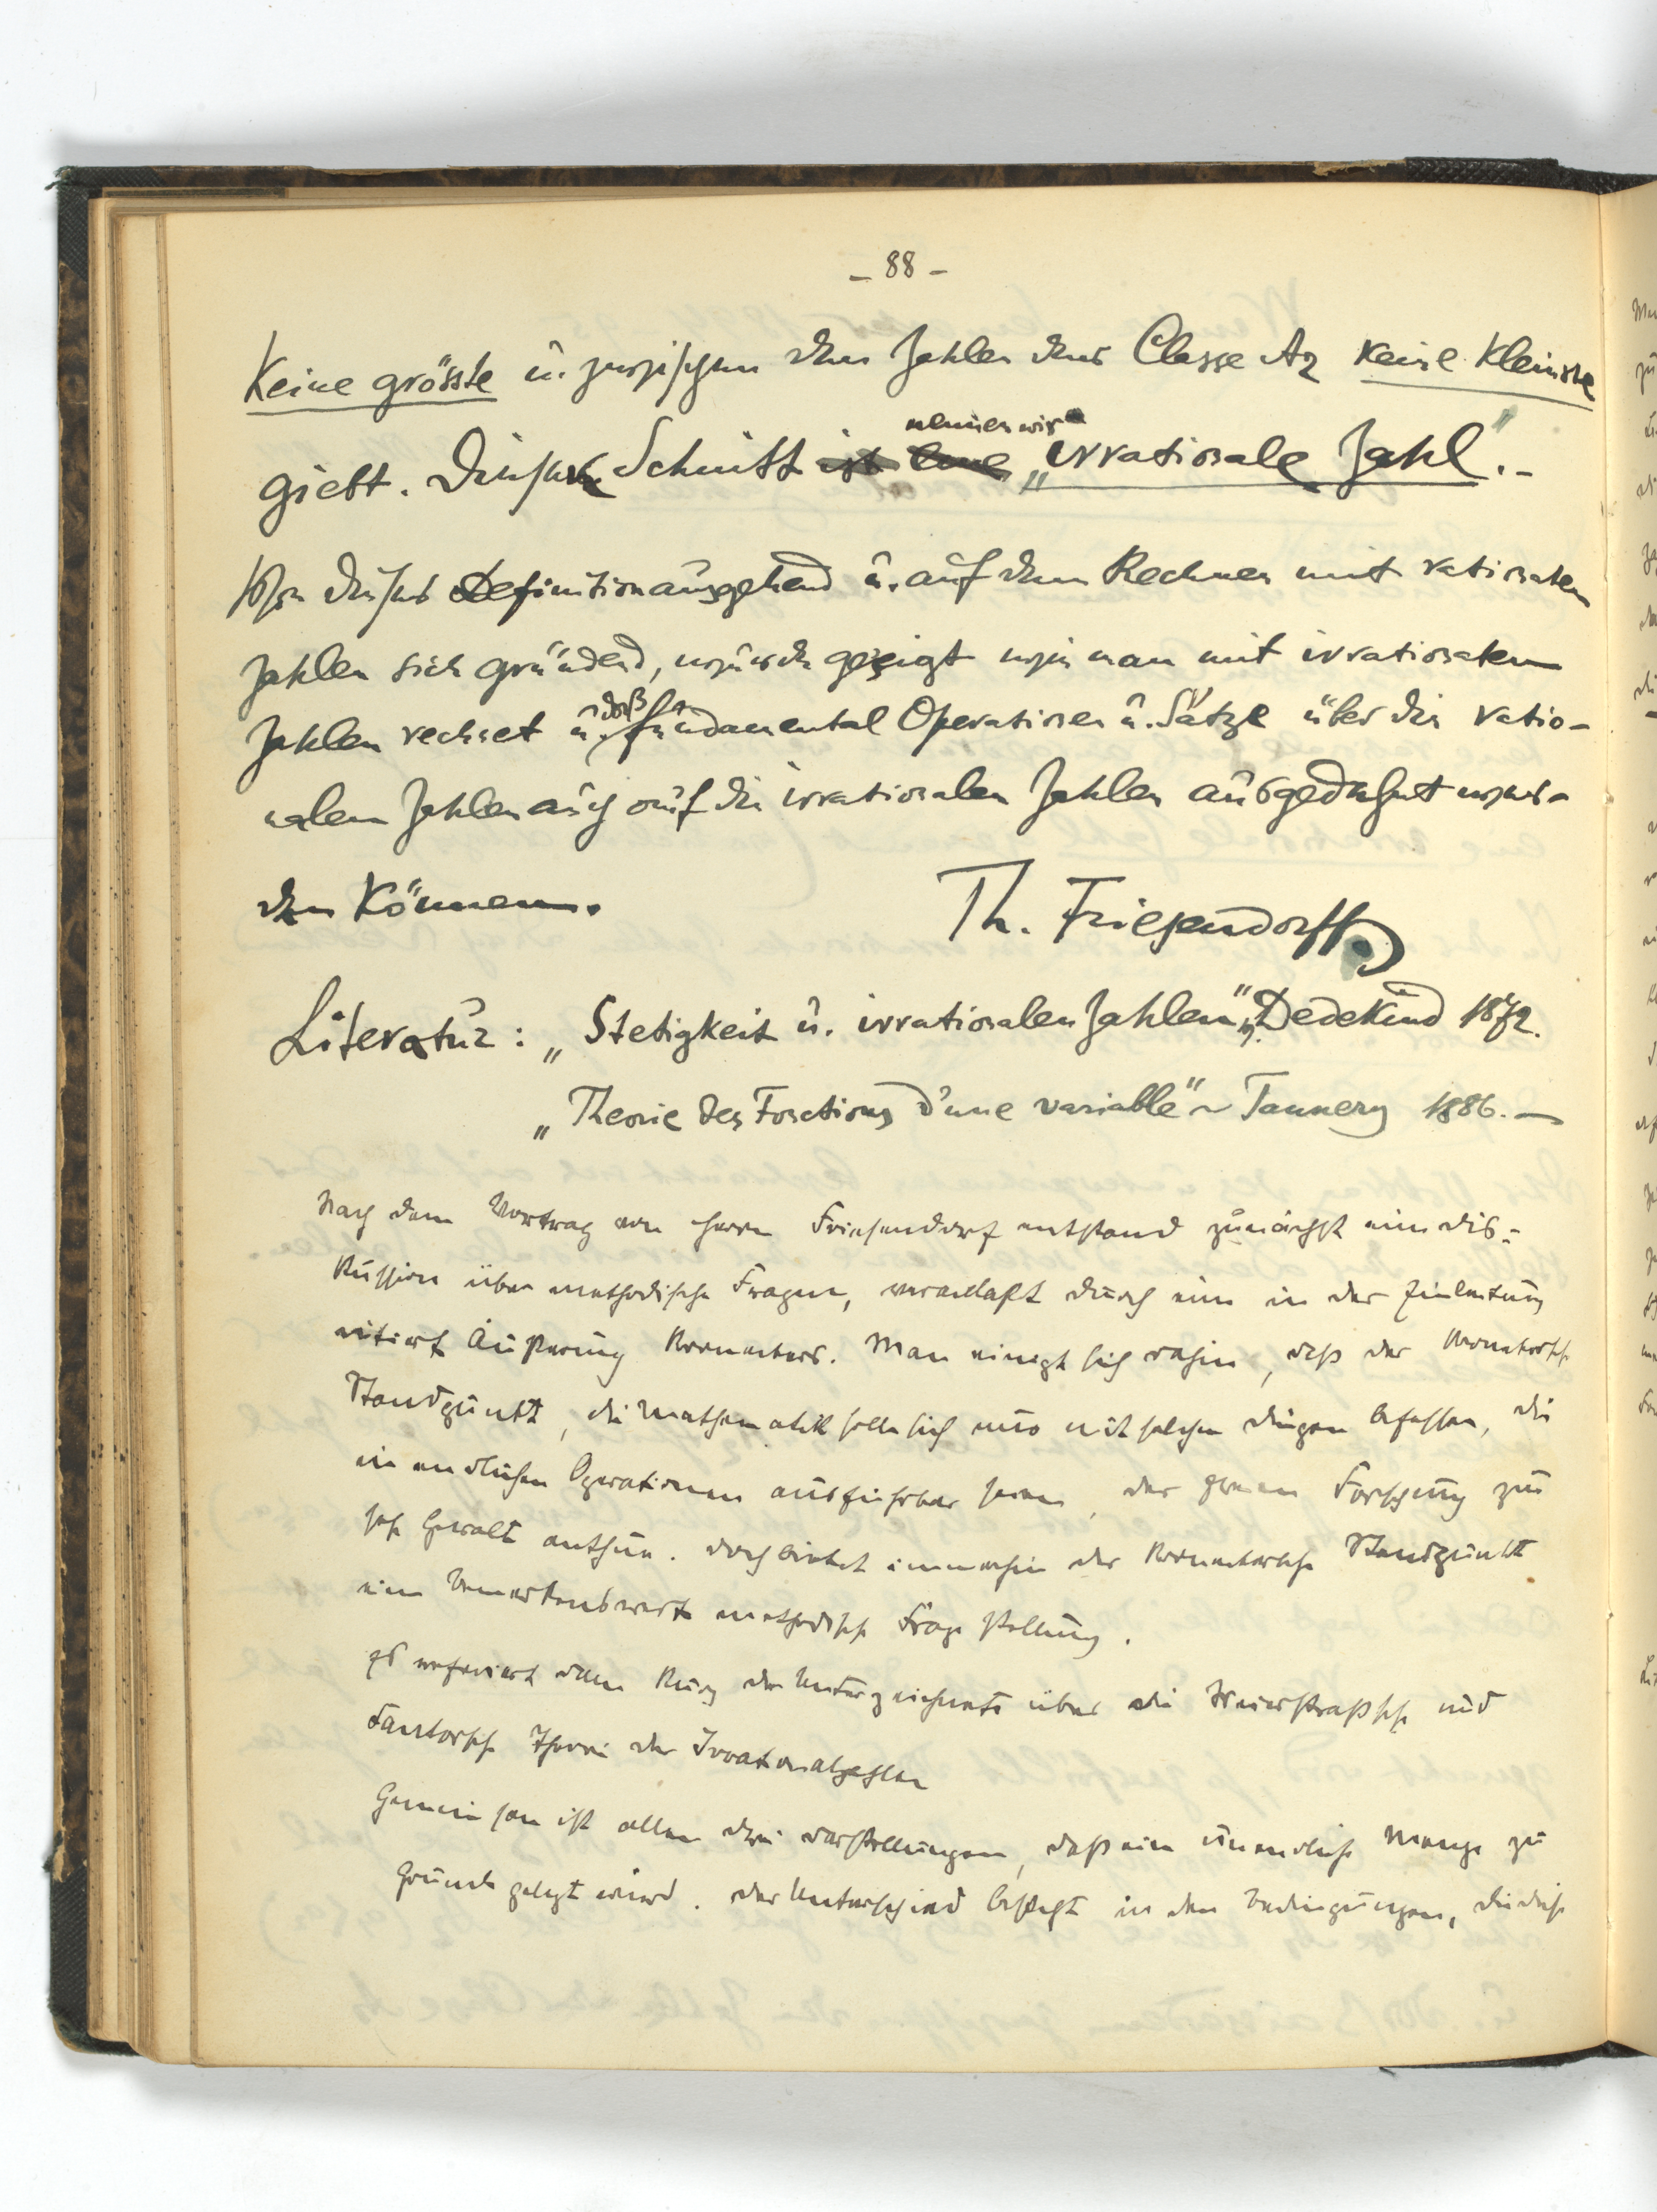 – 88 –
Keine grösste u. zwischen den Zahlen der Classe A2 keine kleinste
giebt. Diesen Schnitt ist eine nennen wir „irrationale Zahl“.–
Von dieser Definition ausgehend u. auf dem Rechnen mit rationalen
Zahlen sich gründend, wurde gezeigt wie man mit irrationalen
Zahlen rechnet u. daß fundamental Operationen u. Sätze über die ratio-
nalen Zahlen auch auf die irrationalen Zahlen ausgedehnt wer-
den können.
Th. Friesendorff
Literatur: „Stetigkeit u. irrationalen Zahlen“, Dedekind 1872.
„Theorie des Fonctions d'une variable“ ~ Tannery 1886. –
Nach dem Vortrag von Herrn Friesendorf entstand zunächst eine Dis-
kussion über methodische Fragen, veranlaßt durch eine in der Einleitung
citierte Äußerung Kroneckers. Man einigt sich dahin, daß der Kroneckersche
Standpunkt, die Mathematik solle sich nur mit solchen Dingen befassen, die
in endlichen Operationen ausführbar seien, der freien Forschung zu
sehr Gewalt anthue. Doch bietet immerhin der Kroneckersche Standpunkt
eine bemerkenswerte methodische Fragestellung.
Es referiert dann kurz der Unterzeichnete über die Weierstraßsche und
Cantorsche Theorie der Irrationalzahlen
Gemeinsam ist allen drei Darstellungen, daß eine unendliche Menge zu
Grunde gelegt wird. Der Unterschied besteht in den Bedingungen, die diese